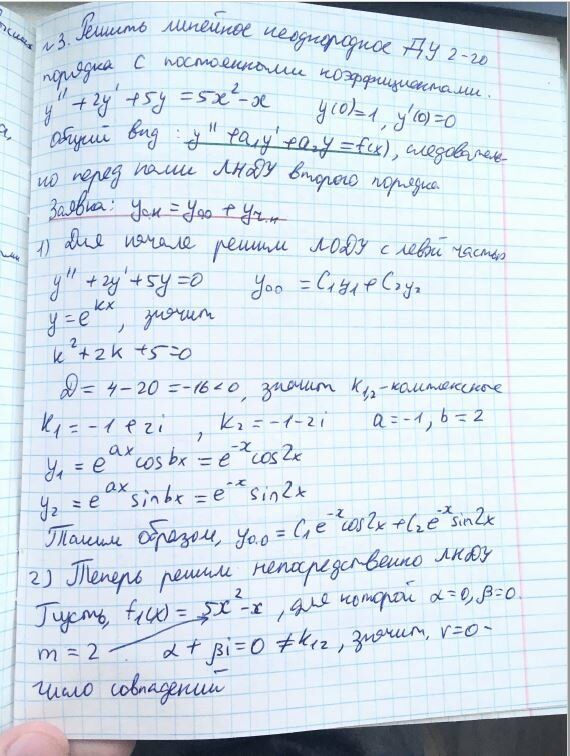 №3. Решить линейное неоднородное ДУ 2-го
порядка с постоянными коэффициентами.
y'' + 2y' + 5y = 5x² - x y(0)=1, y'(0)=0
Общий вид: y'' + a₁y' + a₂y = f(x), следователь-
но перед нами ЛНДУ второго порядка
Заявка: yо.н = yоо + yч.н
1) Для начале решим ЛОДУ с левой частью
y'' + 2y' + 5y = 0 yоо = C₁y₁ + C₂y₂
y = e^{kx}, значит
k² + 2k + 5 = 0
D = 4 - 20 = -16 < 0, значит k₁,₂ - комплексные
k₁ = -1 + 2i, k₂ = -1 - 2i a = -1, b = 2
y₁ = e^{ax} cos bx = e^{-x} cos 2x
y₂ = e^{ax} sin bx = e^{-x} sin 2x
Таким образом, yо.о = C₁e^{-x} cos 2x + C₂e^{-x} sin 2x
2) Теперь решим непосредственно ЛНДУ
Пусть, f₁(x) = 5x² - x, для которой α=0, β=0.
m = 2 α + βi = 0 ≠ k₁₂, значит, r=0 -
число совпадений